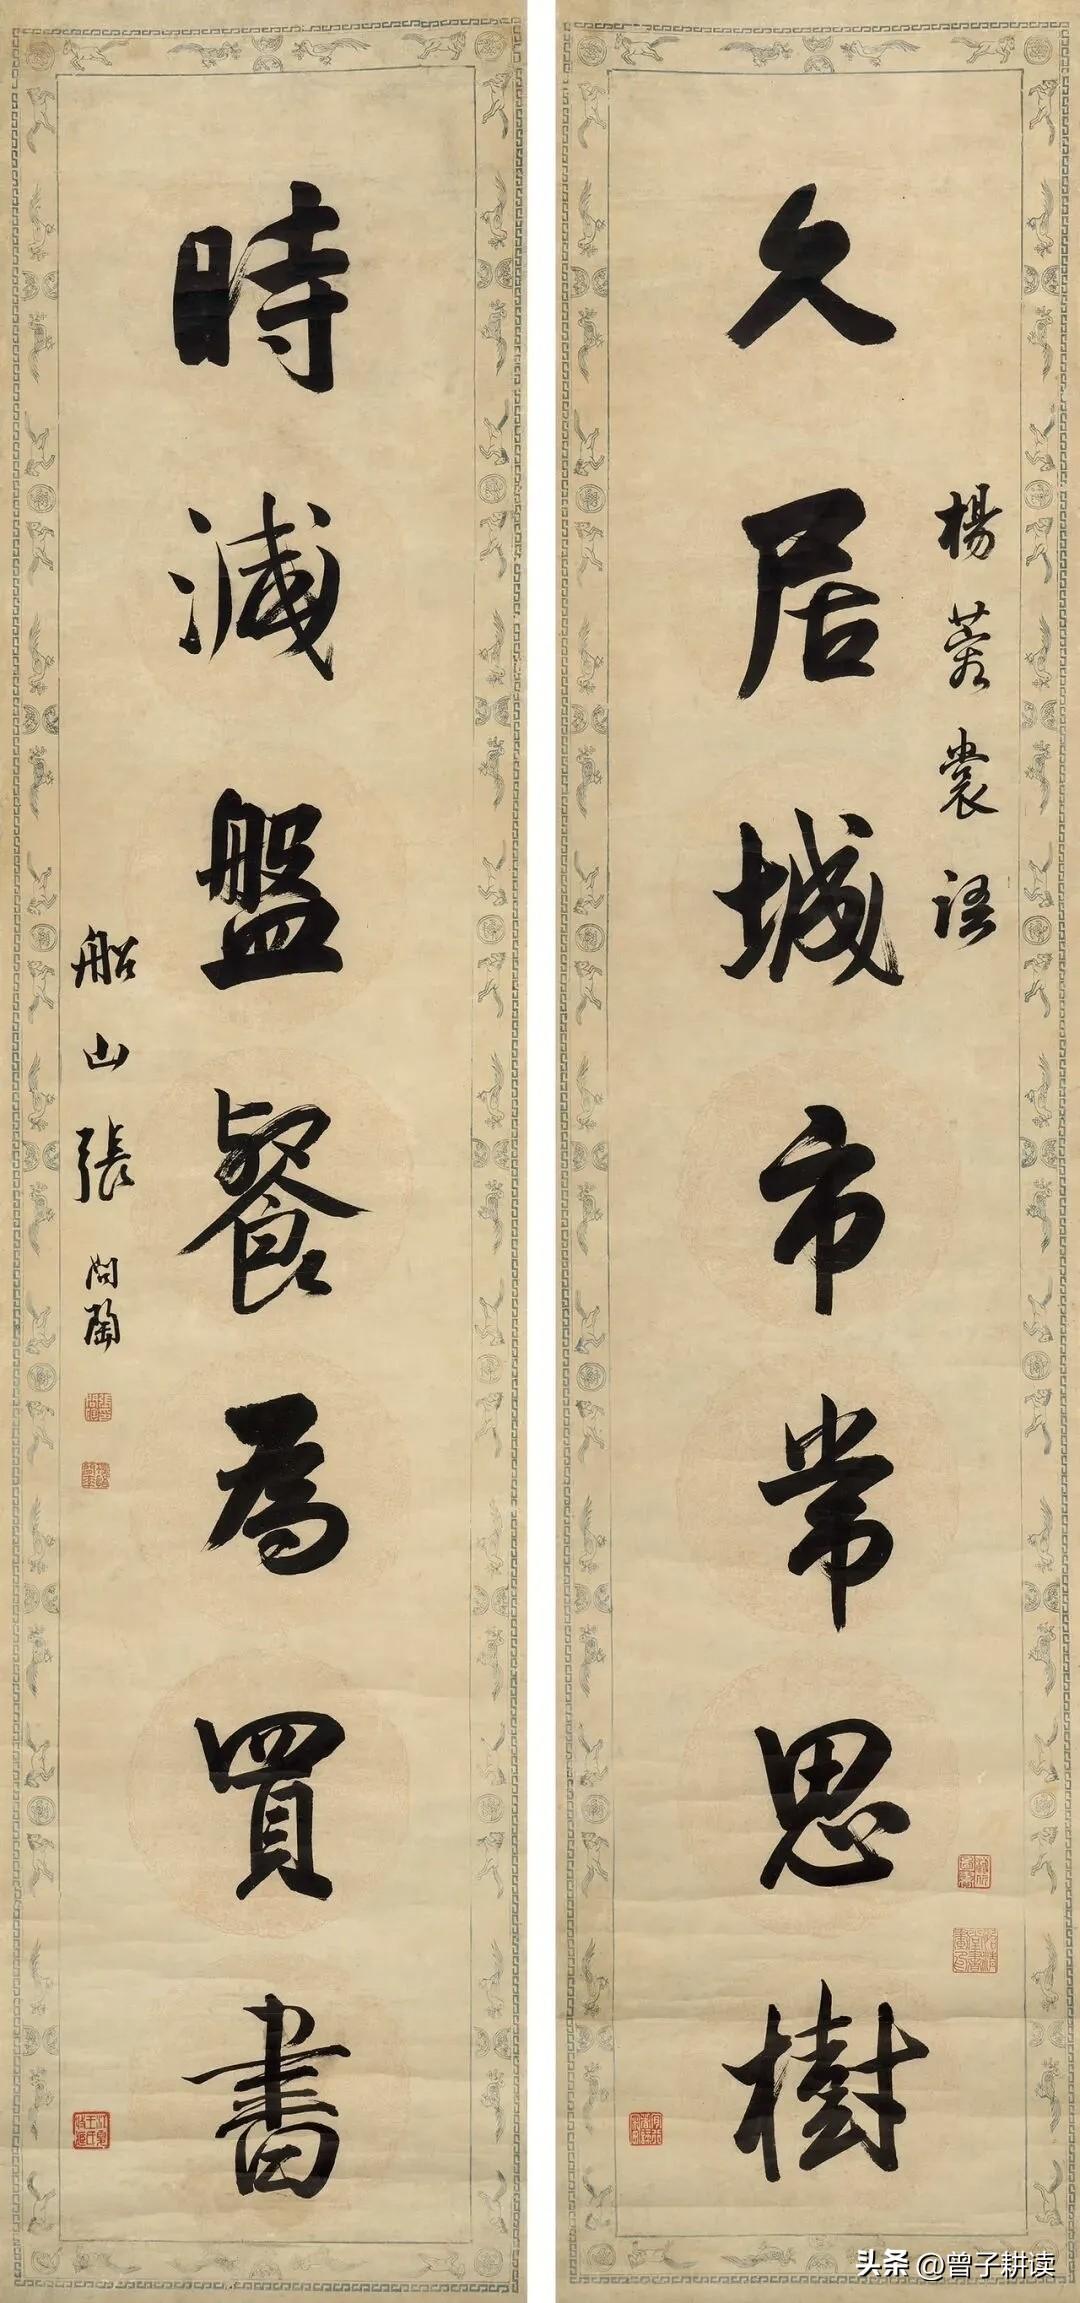 楊蓉裳語
久居城市常思樹
時減盤餐為買書
船山張問陶
头条 @曾子耕读